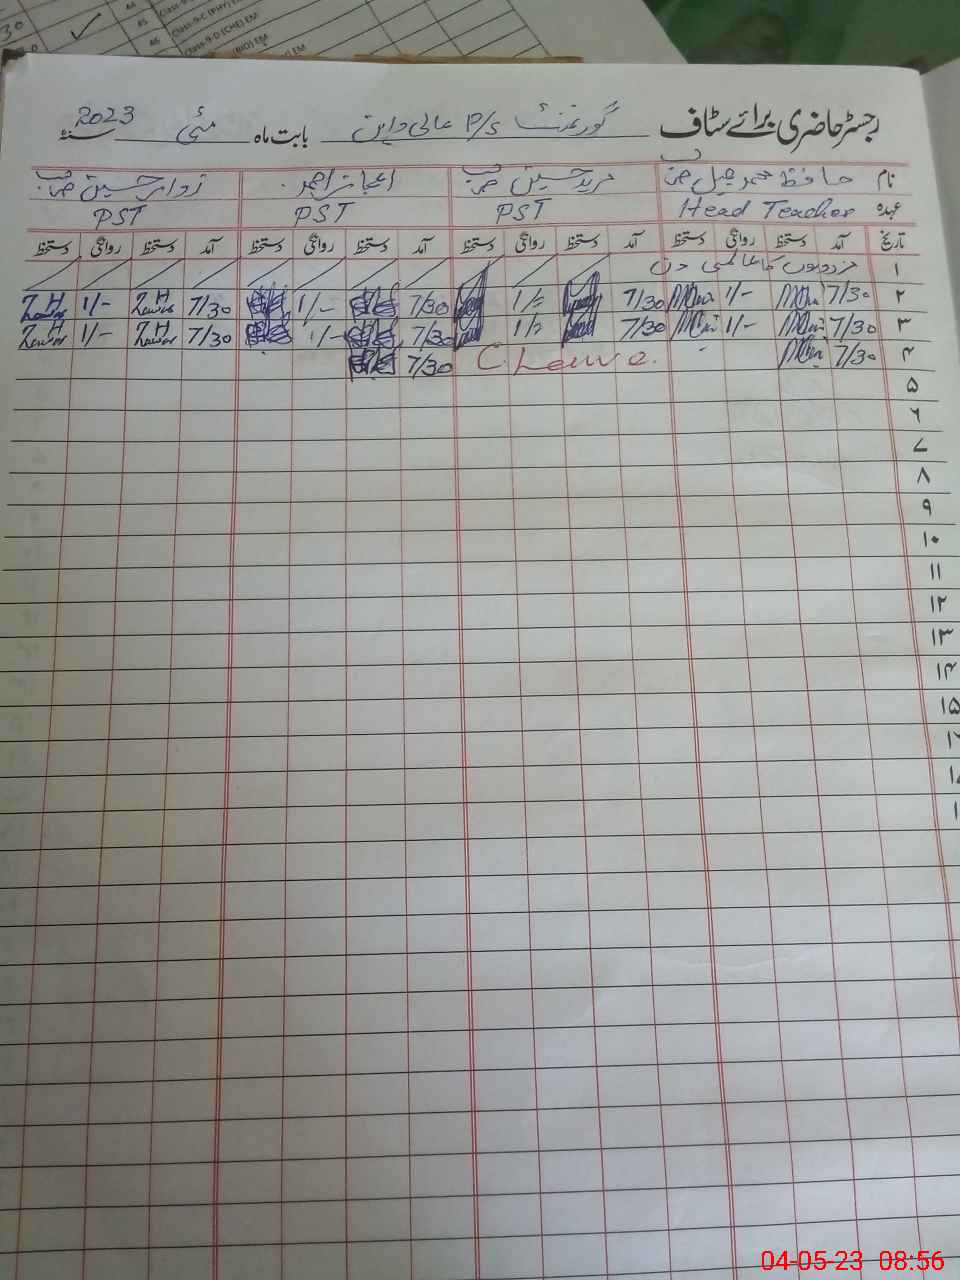 44
45 Class-9-C (PHY) EM
46 Class-9-D (CHE) EM
(BIO) EM
رجسٹر حاضری برائے سٹاف گورنمنٹ P/S عالی واہن بابت ماہ مئی سنہ 2023
نام حافظ محمد جمیل صاحب مرید حسین صاحب اعجاز احمد زوار حسین صاحب
عہدہ Head Teacher PST PST PST
تاریخ آمد دستخط روانگی دستخط آمد دستخط روانگی دستخط آمد دستخط روانگی دستخط آمد دستخط روانگی دستخط
۱ مزدوروں کا عالمی دن
۲ 7/30 1/- 7/30 1/- 7/30 1/- 7/30 Z.H 1/- Z.H
۳ 7/30 1/- 7/30 1/- 7/30 1/- 7/30 Z.H 1/- Z.H
۴ 7/30 C. Leave 7/30
۵
۶
۷
۸
۹
۱۰
۱۱
۱۲
۱۳
۱۴
۱۵
04-05-23 08:56